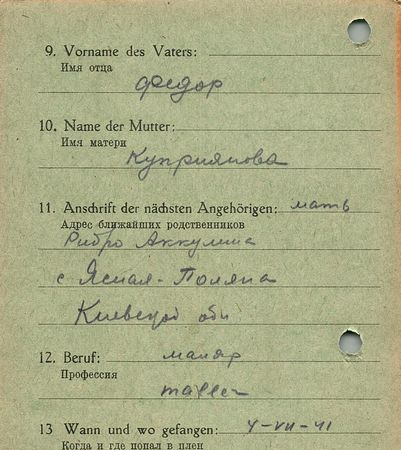 9. Vorname des Vaters:
Имя отца
Федор
10. Name der Mutter:
Имя матери
Куприянова
11. Anschrift der nächsten Angehörigen: мать
Адрес ближайших родственников
Рибро Аккулина
с Ясная-Поляна
Киевской обл
12. Beruf: маляр
Профессия
maller
13 Wann und wo gefangen: 4-VII-41
Когда и где попал в плен